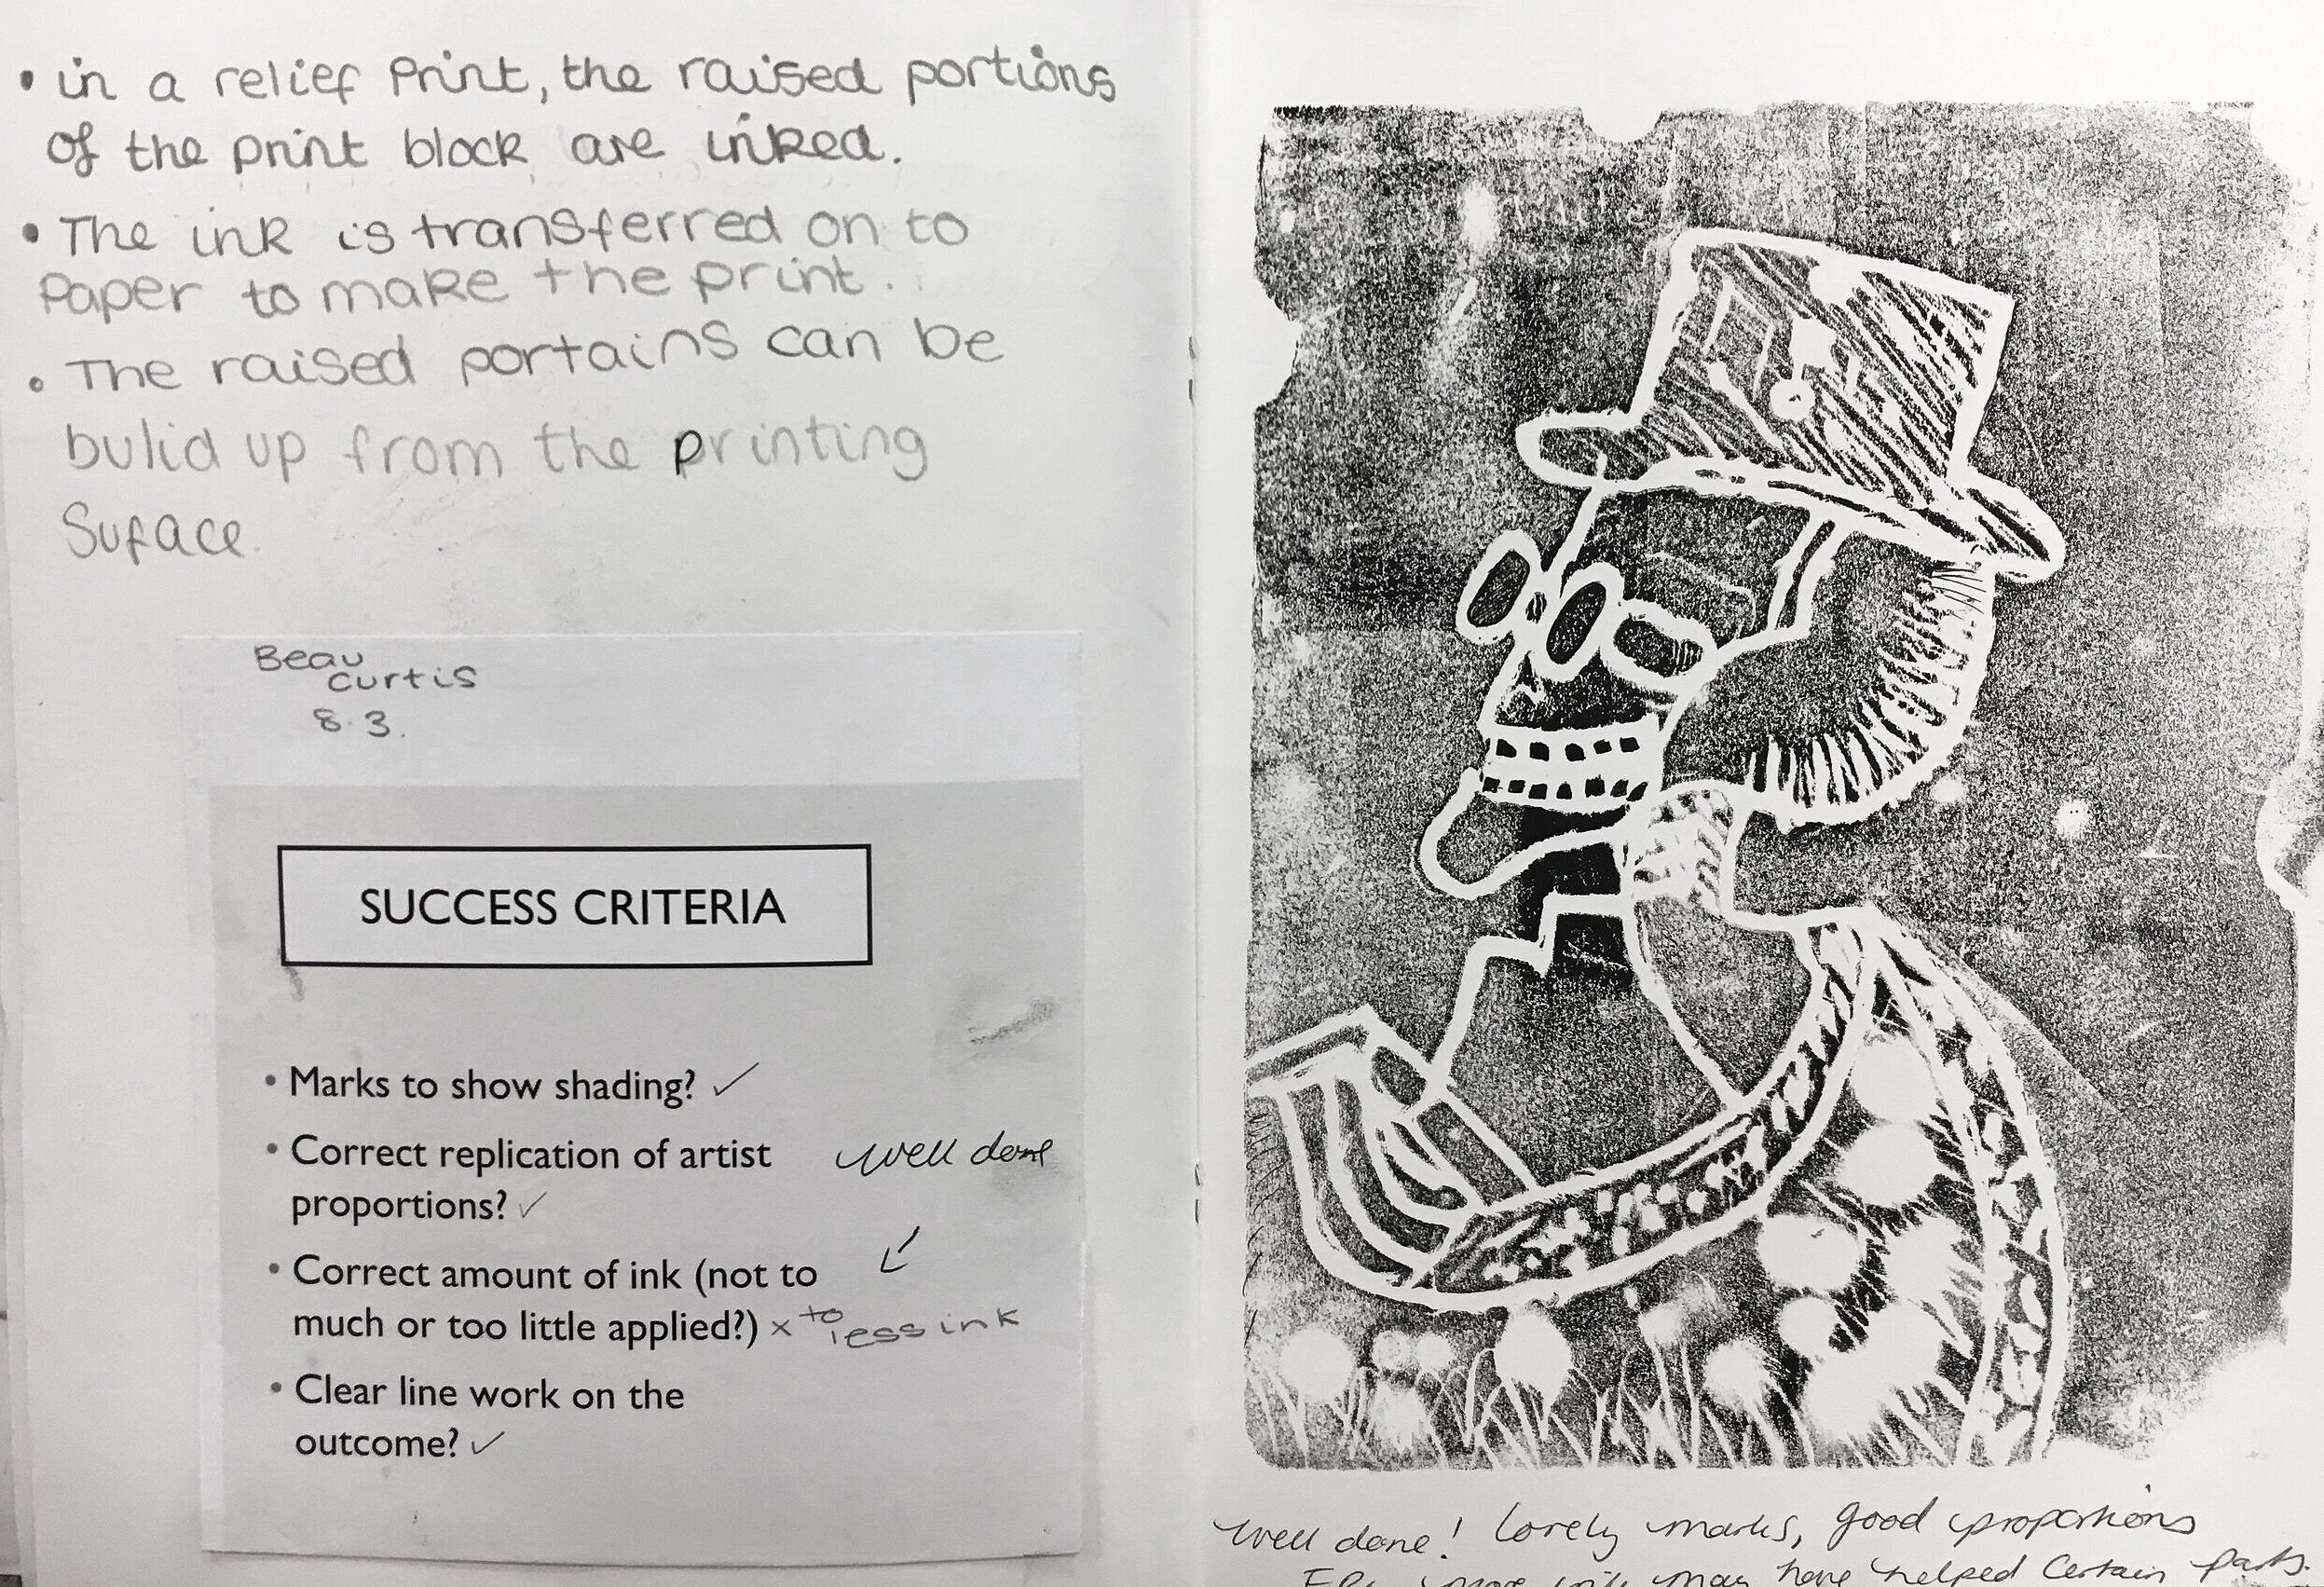 • in a relief Print, the raised portions
of the print block are inked.
• The ink is transferred on to
Paper to make the print.
• The raised portains can be
bulid up from the printing
Suface.
Beau
curtis
8.3.
SUCCESS CRITERIA
• Marks to show shading? ✓
• Correct replication of artist well done
proportions? ✓
• Correct amount of ink (not to
much or too little applied?) x to less ink
• Clear line work on the
outcome? ✓
Well done! Lovely marks, good proportions
more ink may have helped certain parts.